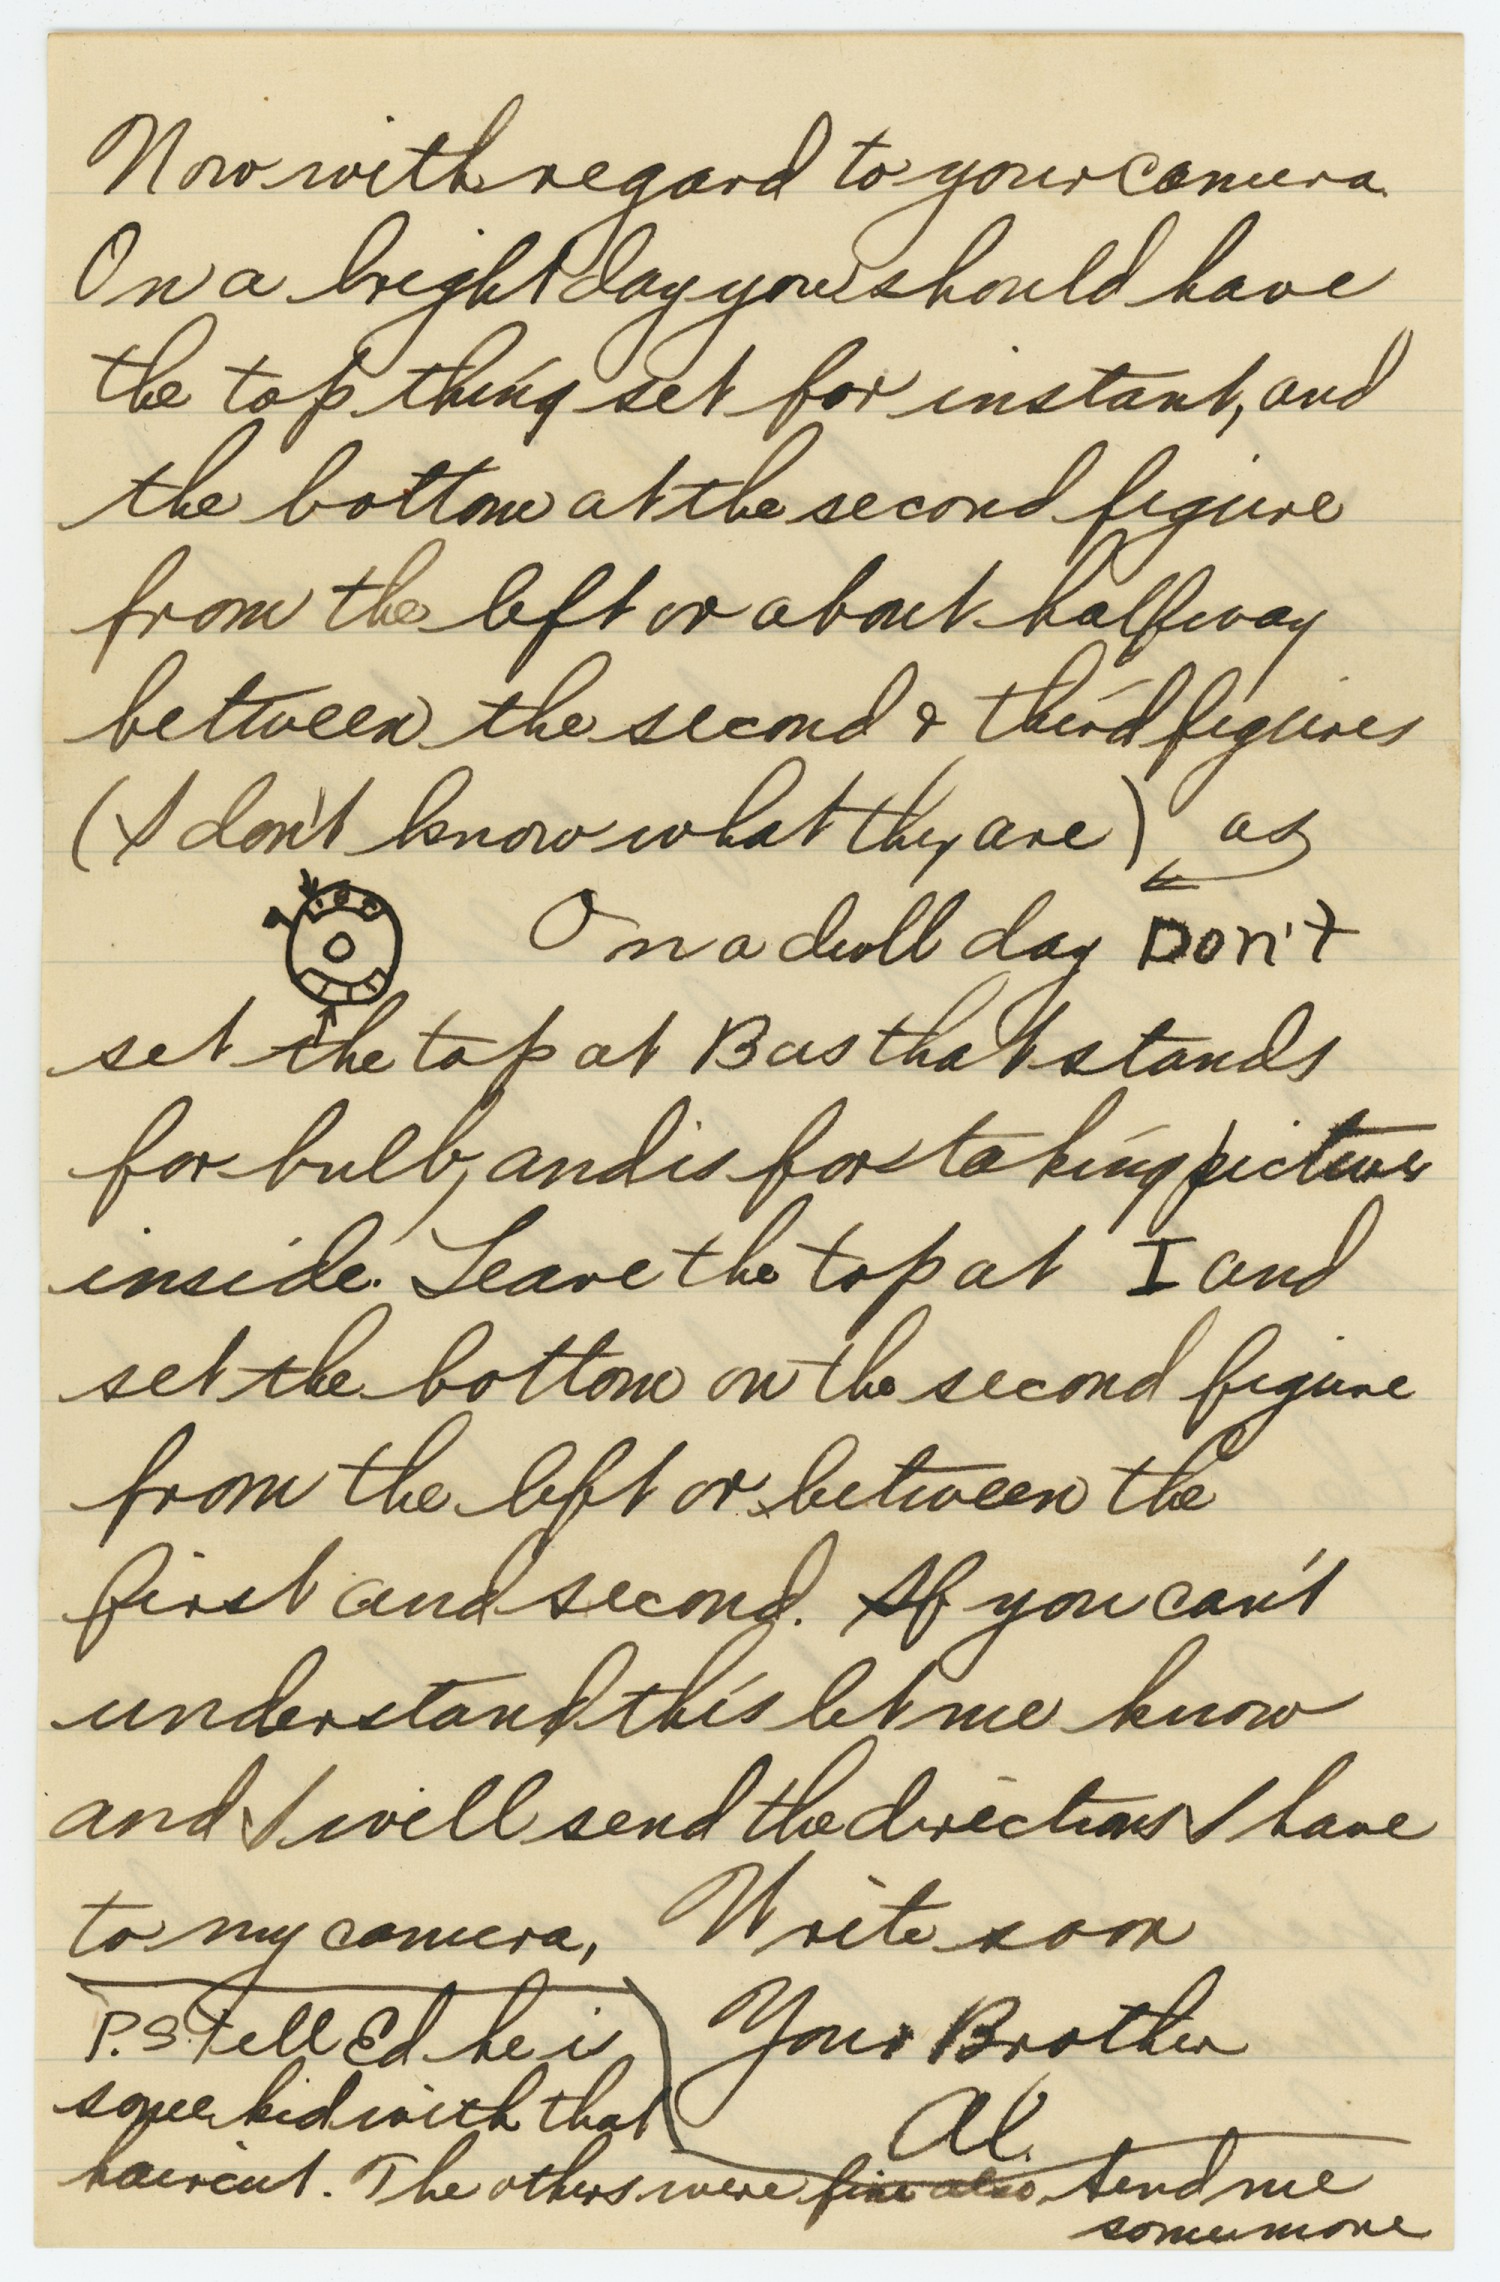 Now with regard to your camera.
On a bright day you should have
the top thing set for instant, and
the bottom at the second figure
from the left or about halfway
between the second & third figures
(I don't know what they are) as
On a dull day Don't
set the top at B as that stands
for bulb, and is for taking pictures
inside. Leave the top at I and
set the bottom on the second figure
from the left or between the
first and second. If you can't
understand this let me know
and I will send the directions I have
to my camera, Write soon
Your Brother
Al.
P.S. tell Ed he is
some kid with that
haircut. The others were fine also. Send me
some more